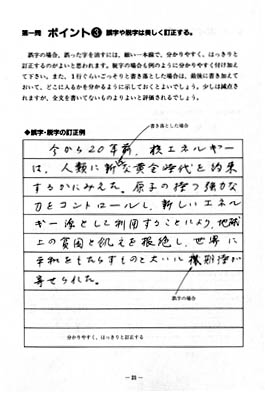 第一発 ポイント③ 誤字や脱字は美しく訂正する。
誤字の場合、誤った字を消すには、細い一本線で、分かりやすく、はっきりと
訂正するのがよいと思われます。脱字の場合も例のように分かりやすく付け加え
て下さい。また、1行ぐらいごっそりと書き落とした場合は、最後に書き加えて
おいて、どこに入るかを分かるように示しておくとよいでしょう。少しは減点さ
れますが、全文を書いてないものよりよいと評価されるでしょう。
◆誤字・脱字の訂正例
書き落とした場合
今から20年前、核エネルギー
は、人類に新な黄金時代を約束
するかにみえた。原子の持つ強力な
力をコントロールし、新しいエネル
ギー源として利用することにより、地球
上の貧困と飢えを根絶し、世界に
平和をもたらすものと大いに期待が
寄せられた。
誤字の場合
分かりやすく、はっきりと訂正する
— 21 —